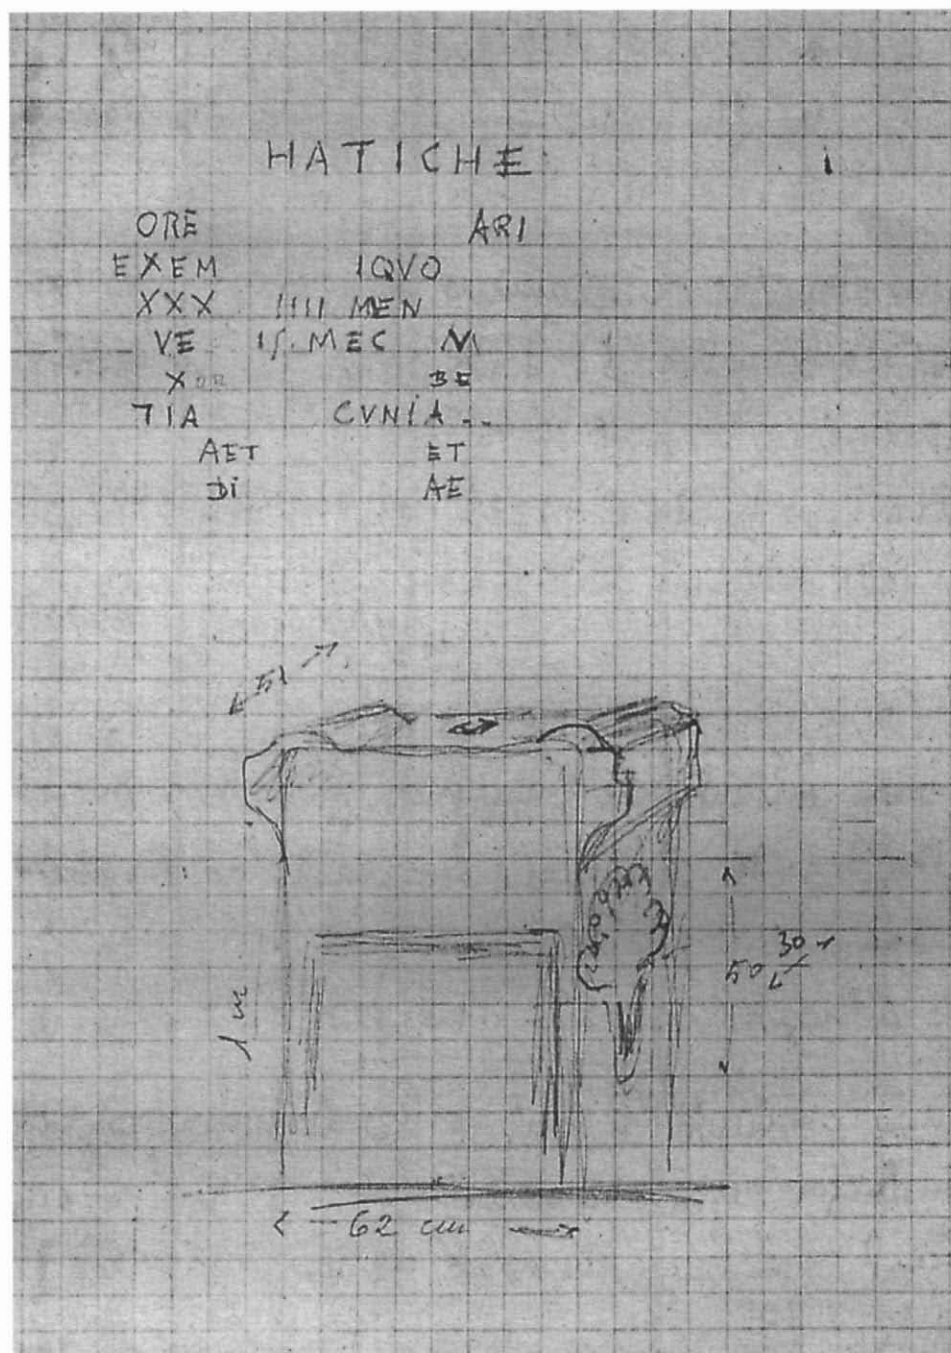 HATICHE i
ORE ARI
EXEM IQVO
XXX IIII MEN
VE IS. MEC M
XOR BE
TIA CVNIA ..
AET ET
Di AE
51
1 m
50
30
62 cm